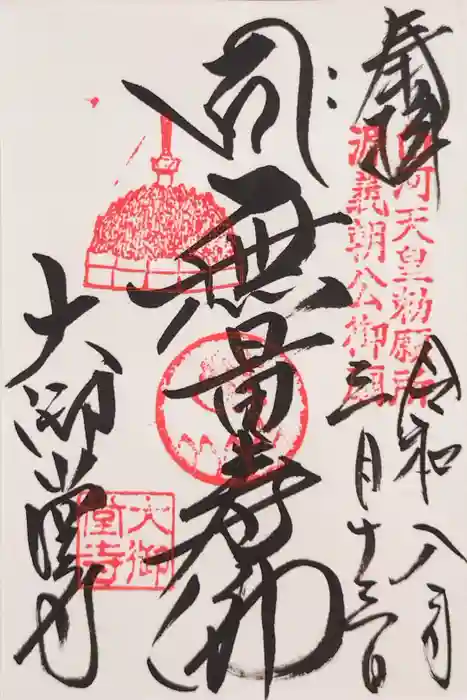 奉拝
白河天皇勅願所
源義朝公御廟
令和八年
三月十三日
無量寿佛
大御堂寺
大御堂寺